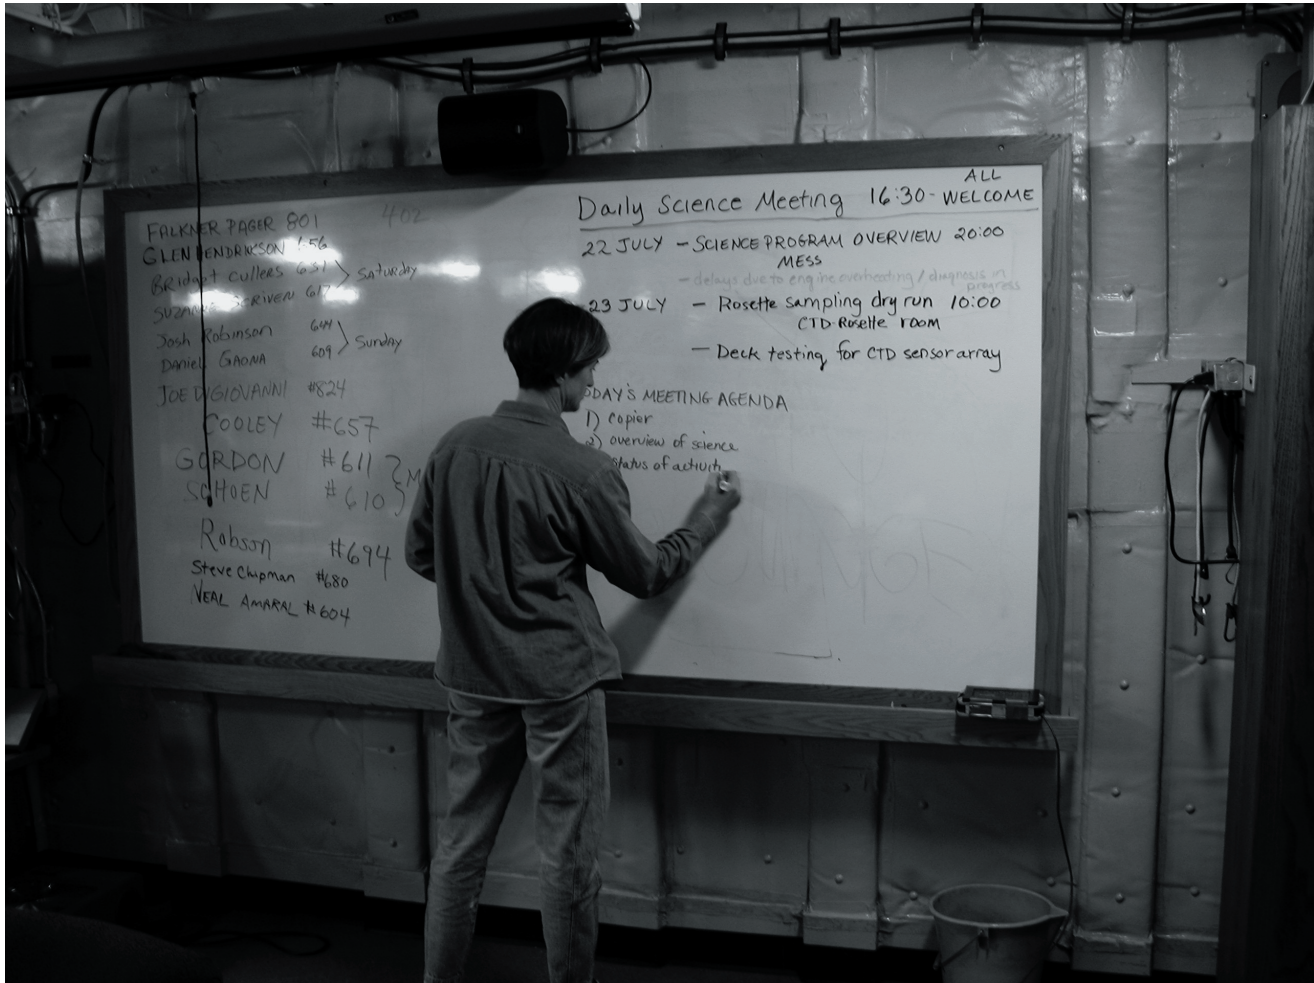 FALKNER PAGER 801
402
GLEN HENDRIKSON
Bridget Cullers 631
SUZANNE SCRIVEN 617
Saturday
Josh Robinson 644
Daniel GAONA 609
Sunday
JOE DIGIOVANNI #824
COOLEY #657
GORDON #611
SCHOEN #610
M
Robson #694
Steve Chapman #680
NEAL AMARAL #604
Daily Science Meeting 16:30 - ALL WELCOME
22 JULY - SCIENCE PROGRAM OVERVIEW 20:00
MESS
- delays due to engine overheating / diagnosis in
progress
23 JULY - Rosette sampling dry run 10:00
CTD-Rosette room
- Deck testing for CTD sensor array
ODAY'S MEETING AGENDA
1) copier
2) overview of science
status of activiti